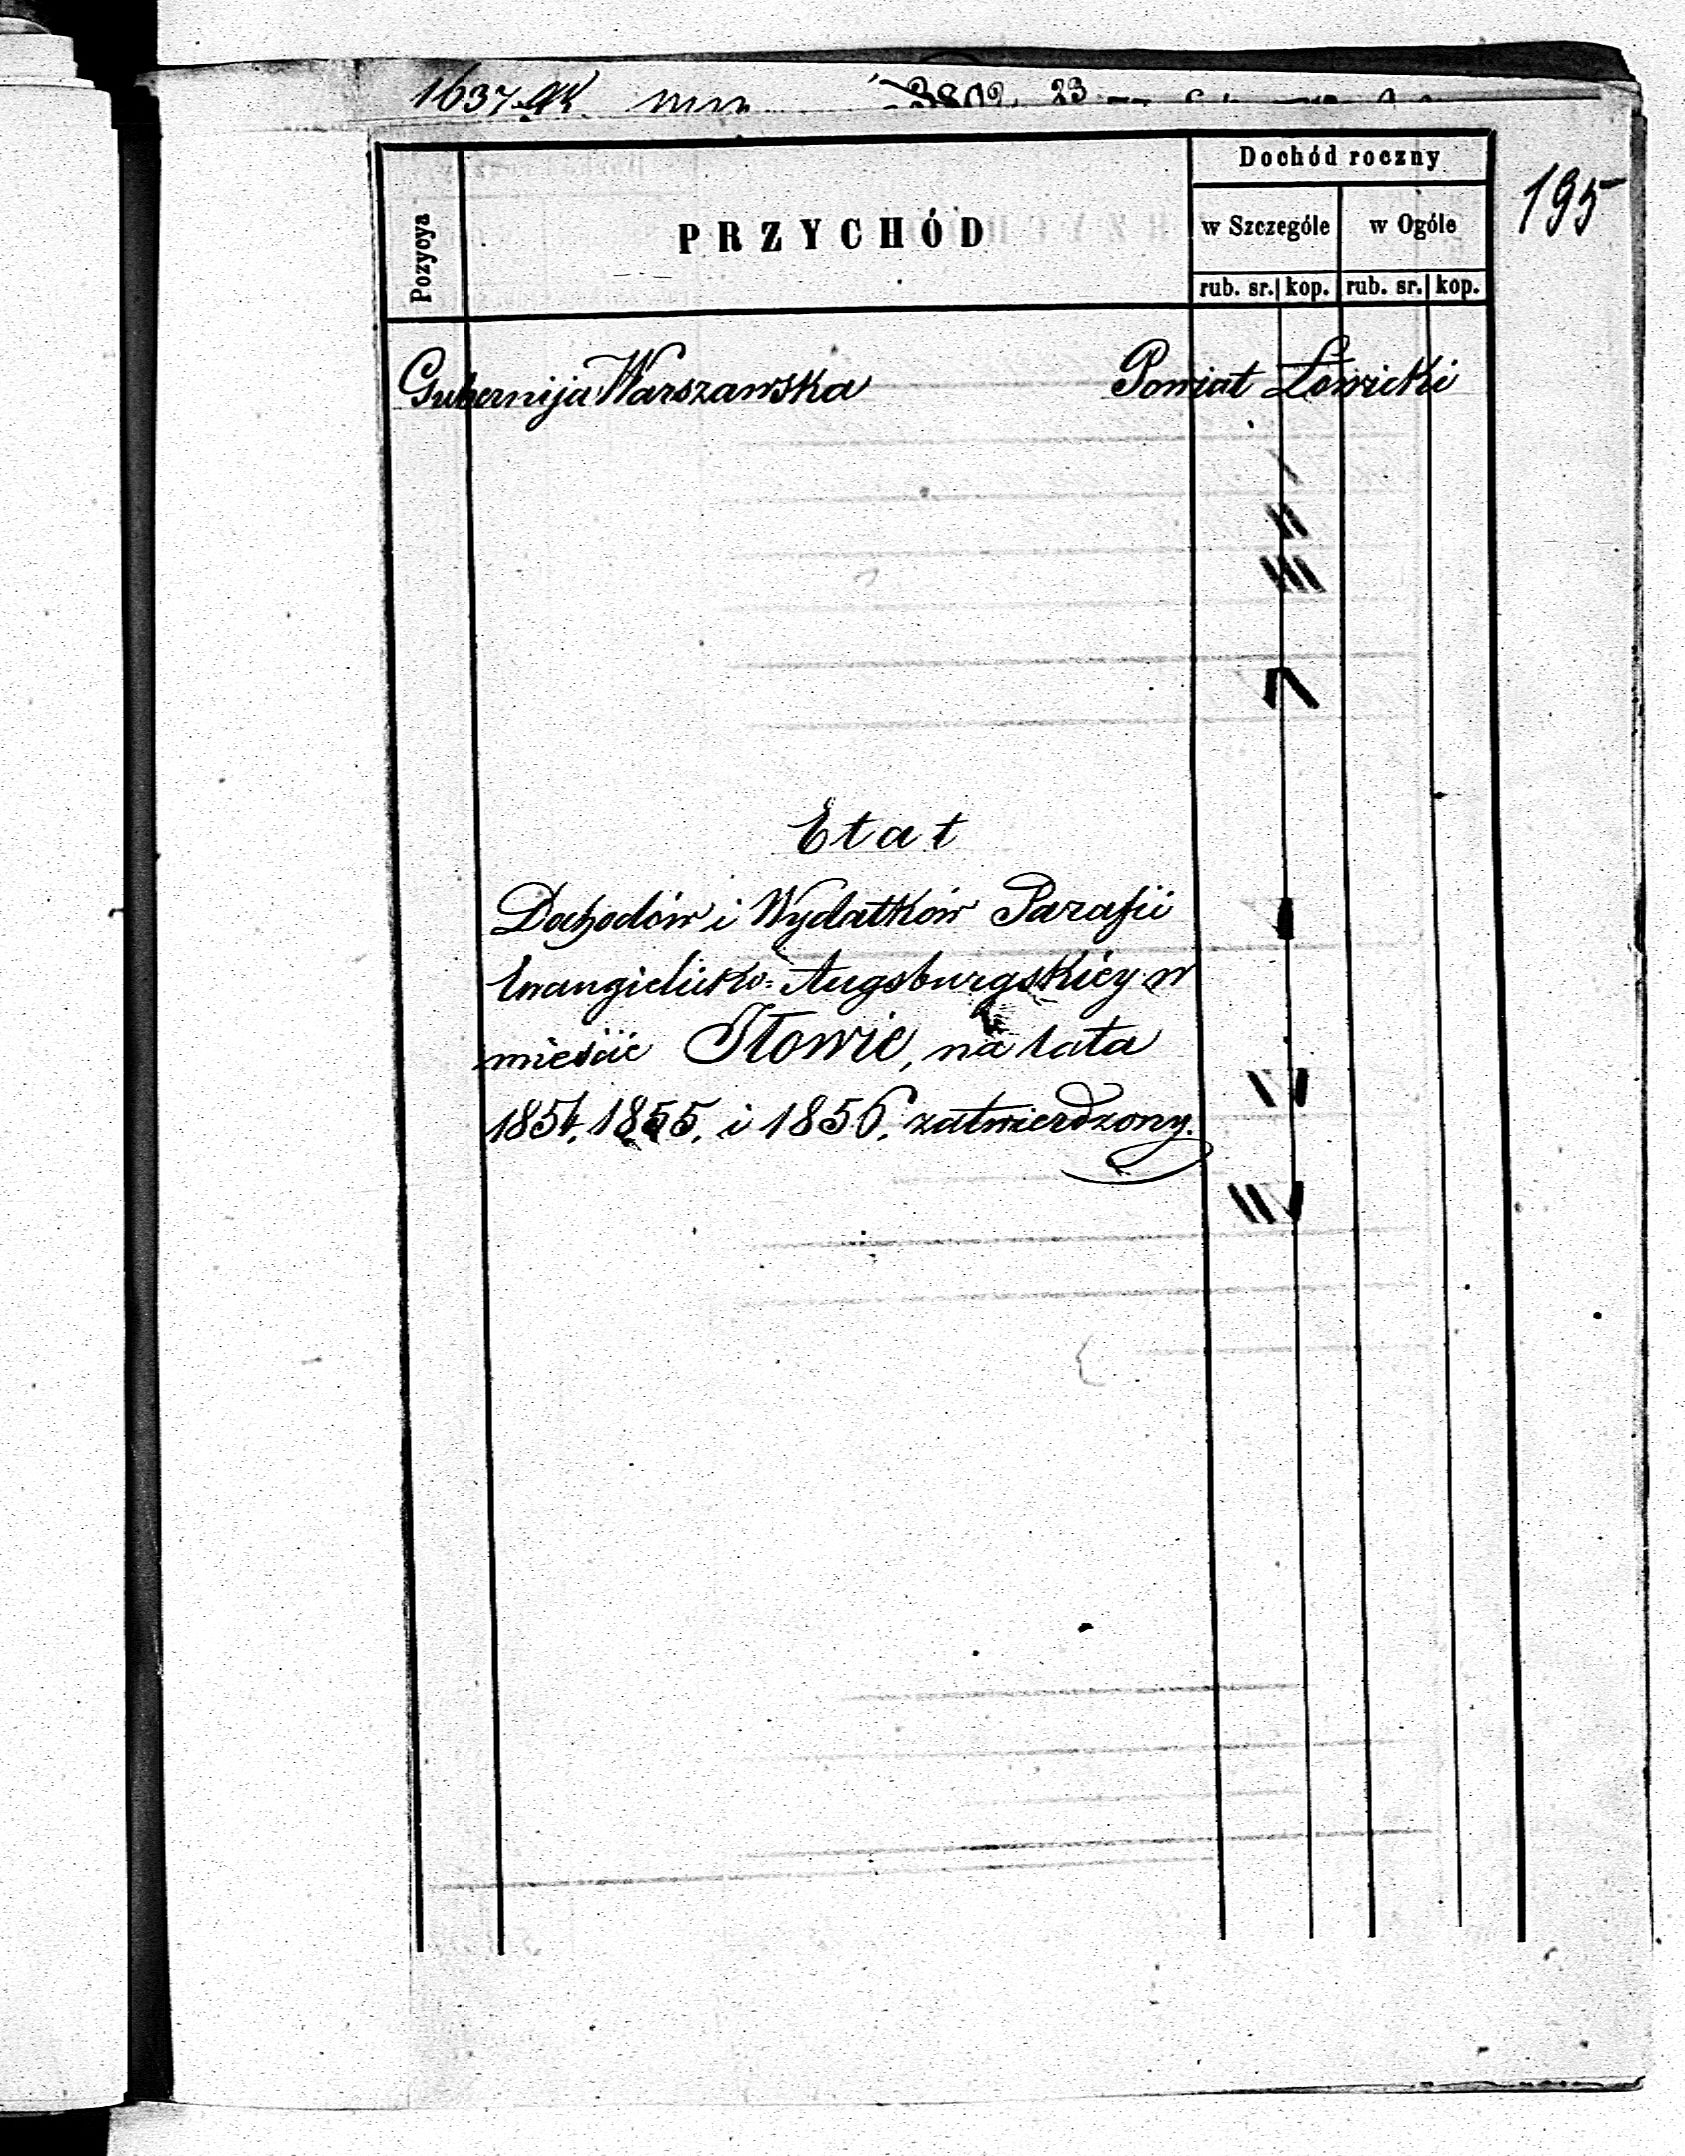 Dochód roczny
195
Pozycya
PRZYCHÓD
w Szczególe w Ogóle
rub. sr. kop. rub. sr. kop.
Gubernija Warszawska Powiat Łowicki
Etat
Dochodów i Wydatków Parafii
Ewangielicko-Augsburgskiéy w
mieście Iłowie, na lata
1854, 1855, i 1856. zatwierdzony.